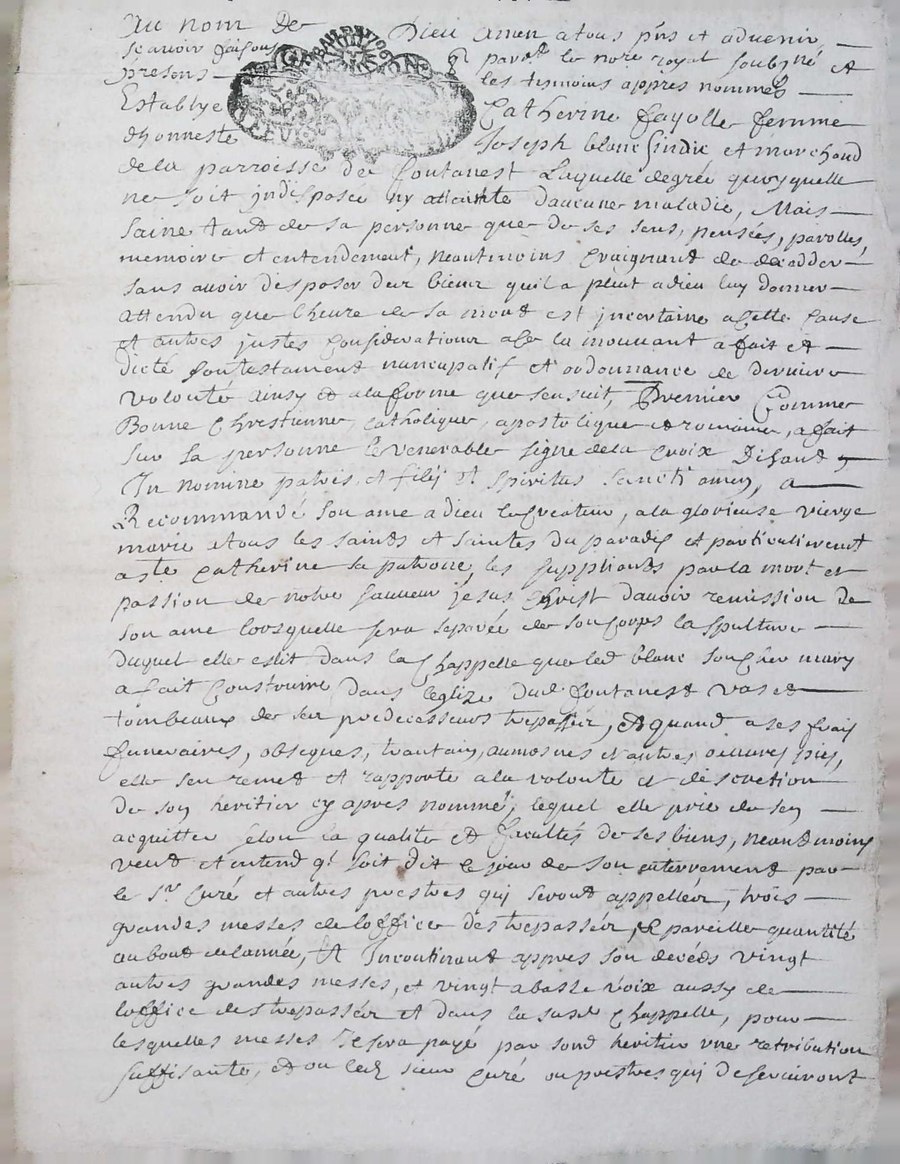 Au nom de Dieu amen a tous pñs et advenir
scavoir faisons q̃ pardt le nore royal soubz.né et
présens les tesmoins appres nommés
Establye Catherine fayolle femme
dhonneste Joseph blanc sindic et marchand
de la parroisse de fontanest Laquelle degrée quoyquelle
ne soit indisposée ny atteinte daucune maladie, Mais
saine tant de sa personne que de ses sens, pensées, parolles,
memoire et entendement, neantmoins Craignant de decedder
sans avoir desposer des biens quil a pleut a dieu luy donner
attendu que lheure de sa mort est jncertaine a Cette Cause
et autres justes Considerations a ce la mouvant a fait et
dicté son testament nuncupatif et ordonnance de derniere
volonté ainsy et a la forme que sensuit, Premier Comme
Bonne Chrestienne, catholique, apostolique et romaine, a fait
sur sa personne le venerable signe de la Croix Disant
In nomine patris et filÿ et spiritus sancti amen, a
Recommandé son ame a dieu le Createur, a la glorieuse vierge
marie a tous les saints et saintes du paradis et particulierement
a ste Catherine sa patrone les suppliants par la mort et
passion de notre sauveur jesus Christ davoir remission de
son ame lorsquelle sera separée de son Corps la spulture
duquel elle eslit dans la Chappelle que led blanc son Cher mary
a fait Construire dans léglize dud fontanest vas et
tombeaux de ses predecesseurs trepassés, Et quand a ses frais
funeraires, obseques, trantain, aumosnes et autres oeuvres pies,
elle sen remet et rapporte a la volonte et discretion
de son heritier cy apres nommé, lequel elle prie de sen
acquitter selon la qualité et facultés de ses biens, neantmoins
veut et entend q.l soit dit le jour de son enterrement par
le Sr Curé et autres prestres qui seront appellés, trois
grandes messes de loffice des trepassés, Et pareille quantité
au bout de lannée, Et Incontinant appres son décéds vingt
autres grandes messes, et vingt a basse voix aussy de
loffice des trepassés et dans la susd Chappelle, pour
lesquelles messes Il sera payé par sond heritier une retribution
suffisante, et ou led sieur Curé ou prestres qui deserviront